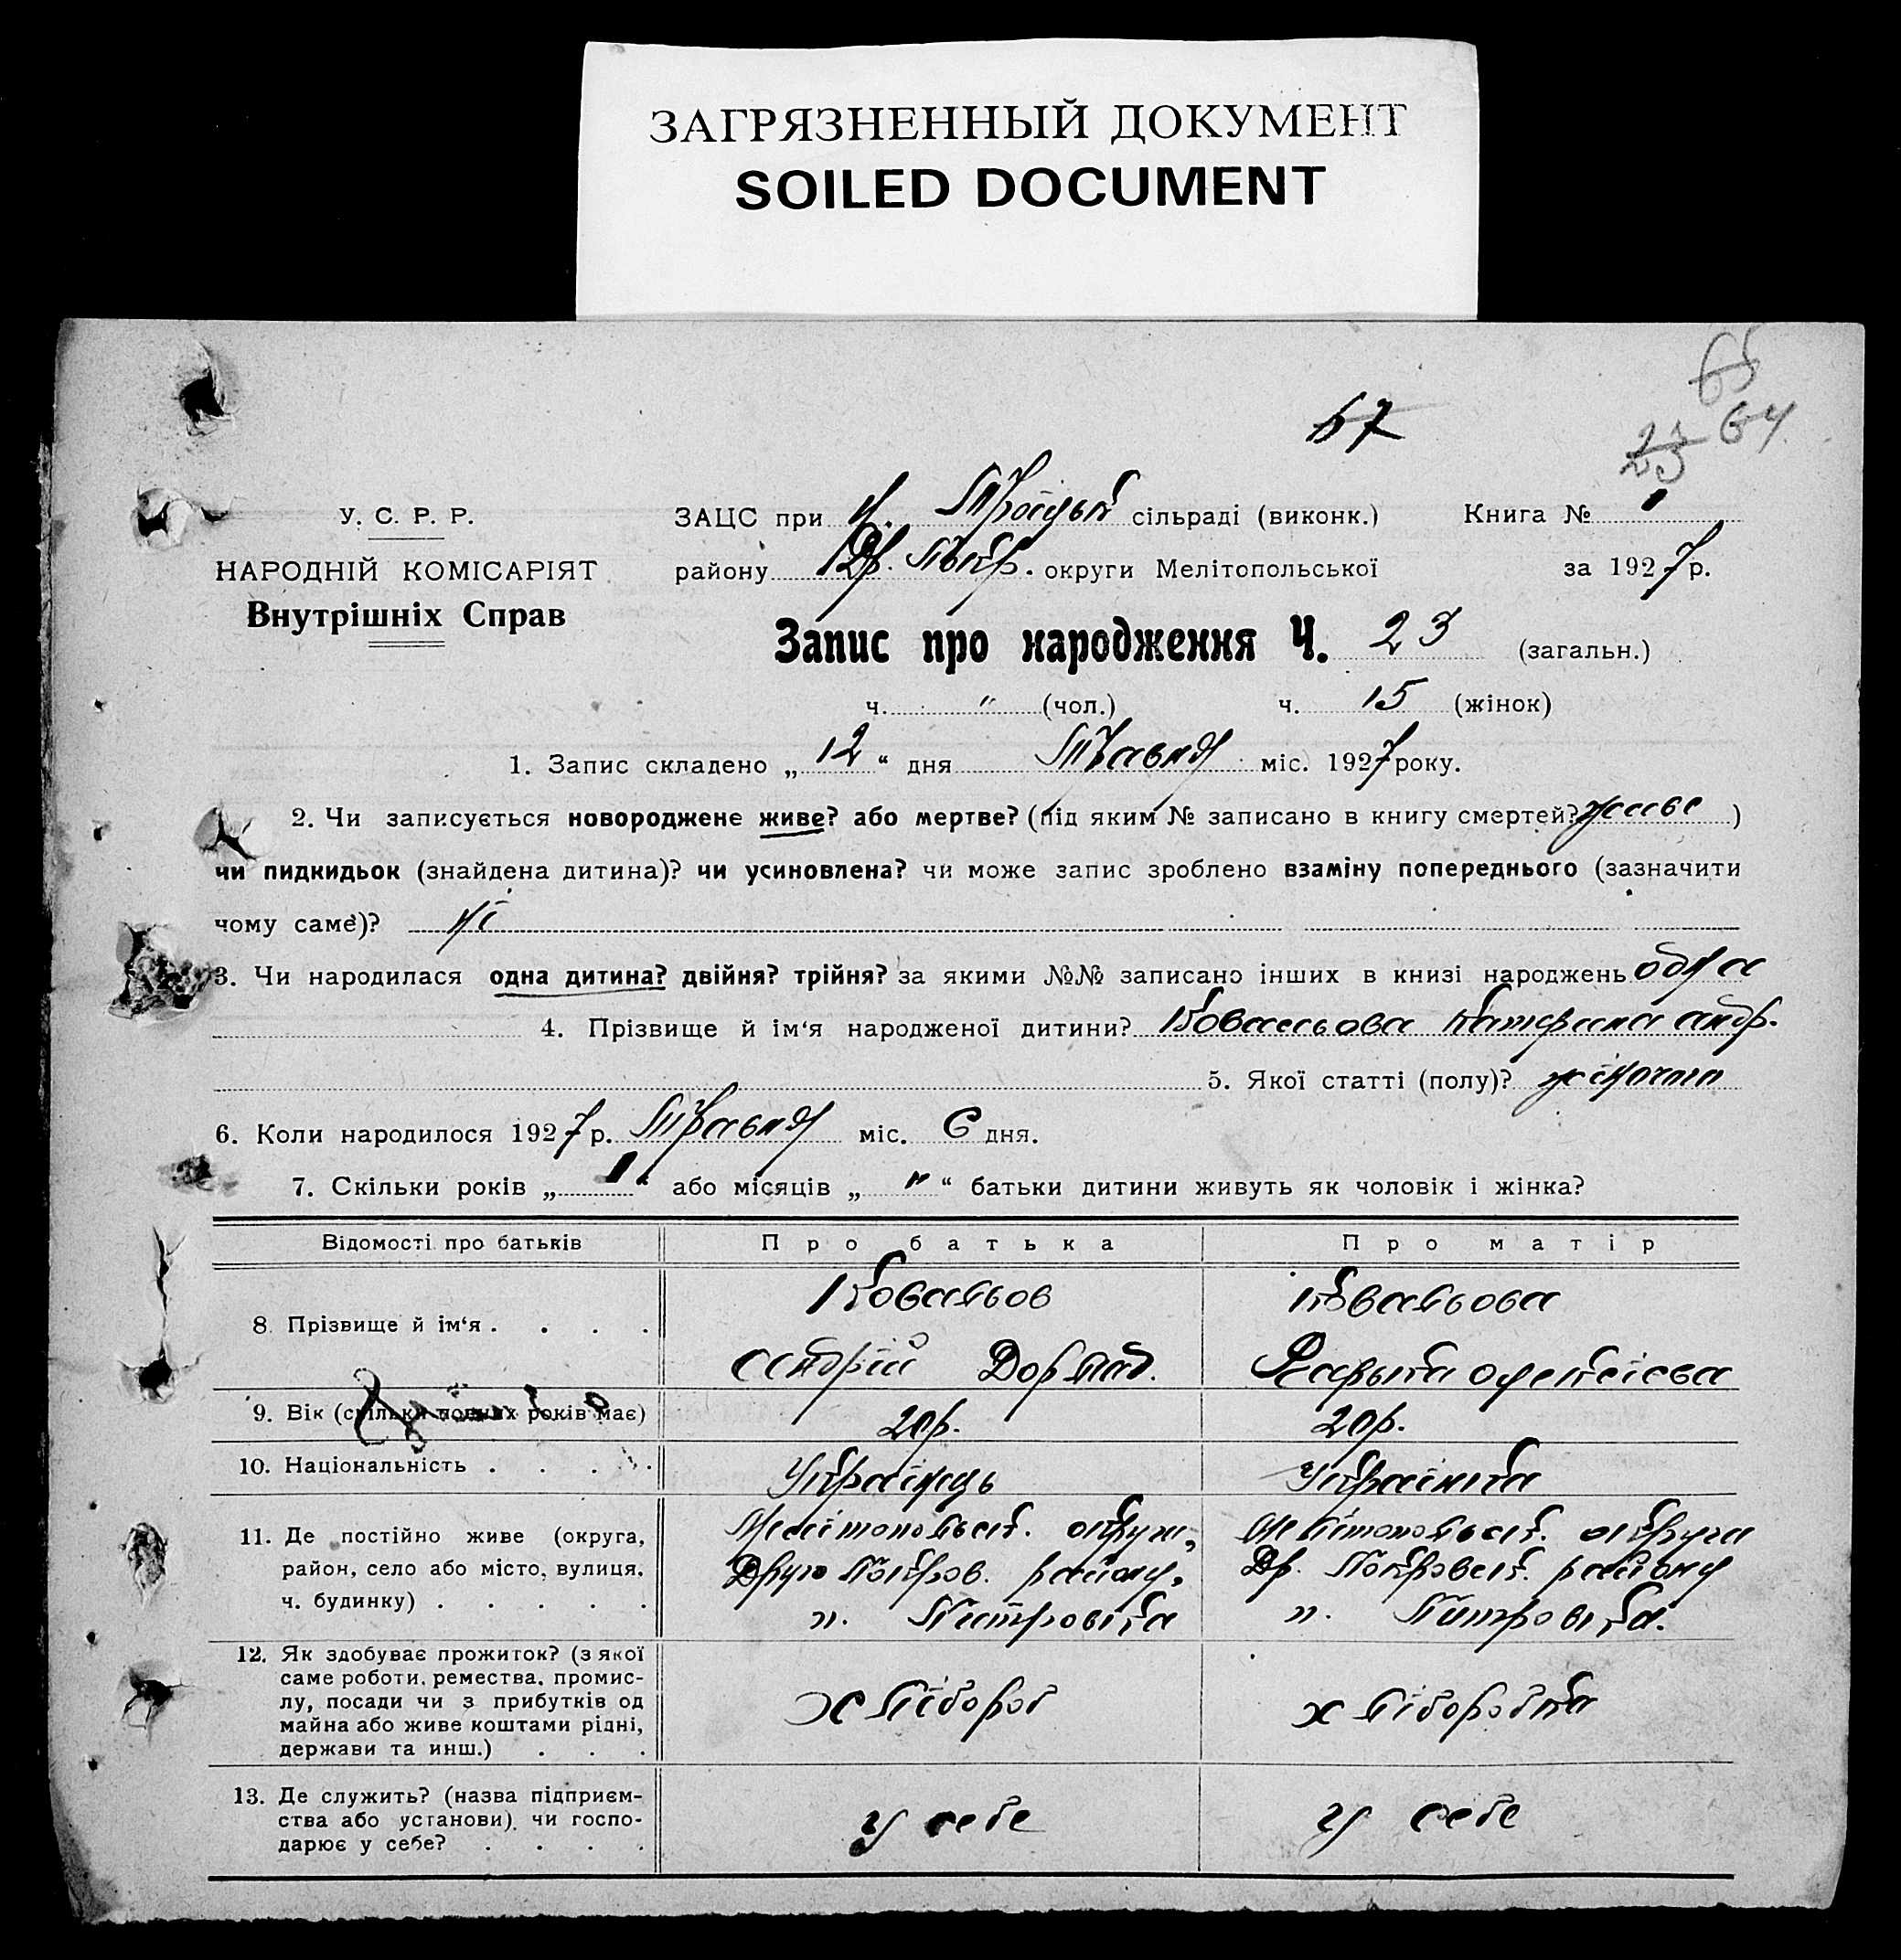 ЗАГРЯЗНЕННЫЙ ДОКУМЕНТ
SOILED DOCUMENT
65
67
23 64.
У. С. Р. Р.
НАРОДНІЙ КОМІСАРІЯТ
Внутрішніх Справ
ЗАЦС при Н. сільраді (виконк.) Книга № 1
району Др. Покр. округи Мелітопольської за 1927 р.
Запис про народження Ч. 23 (загальн.)
ч. " (чол.) ч. 15 (жінок)
1. Запис складено „ 12 “ дня Травня міс. 1927 року.
2. Чи записується новороджене живе? або мертве? (під яким № записано в книгу смертей? живе )
чи пидкидьок (знайдена дитина)? чи усиновлена? чи може запис зроблено взаміну попереднього (зазначити
чому саме)? ні
3. Чи народилася одна дитина? двійня? трійня? за якими №№ записано інших в книзі народжень одна
4. Прізвище й ім‘я народженої дитини? Ковальова Катерина Андр.
5. Якої статті (полу)? жіночої
6. Коли народилося 1927 р. Травня міс. 6 дня.
7. Скільки років „ 1 “ або місяців „ " “ батьки дитини живуть як чоловік і жінка?
Відомості про батьків Про батька Про матір
8. Прізвище й ім‘я . . . . Ковальов Ковальова
Андрій
9. Вік (скільки повних років має) 20 р. 20 р.
10. Національність . . . . Українець Українка
11. Де постійно живе (округа,
район, село або місто, вулиця,
ч. будинку) . . . . .
Мелітопольск. округи, Мелітопольск. округи
Друго Покров. району, Др. Покровск. району
п. Петровка п. Петровка.
12. Як здобуває прожиток? (з якої
саме роботи, ремества, промис-
лу, посади чи з прибутків од
майна або живе коштами рідні,
держави та инш.) . . .
хлібороб хлібородка
13. Де служить? (назва підприєм-
ства або установи), чи госпо-
дарює у себе? . . . .
у себе у себе